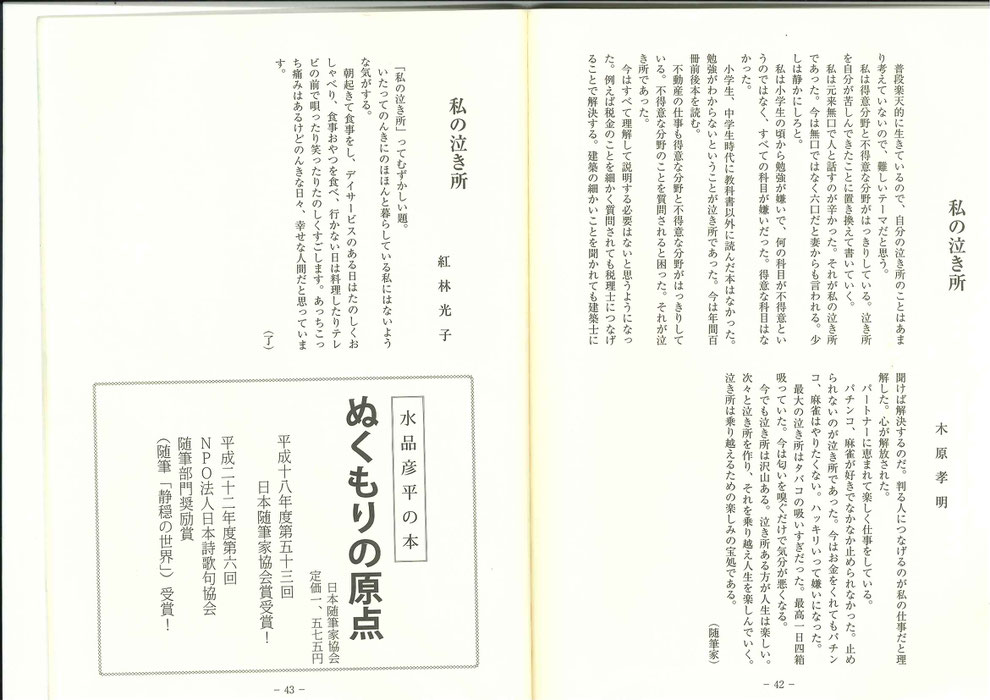 私の泣き所
木原孝明
普段楽天的に生きているので、自分の泣き所のことはあま
り考えていないので、難しいテーマだと思う。
私は得意分野と不得意な分野がはっきりしている。泣き所
を自分が苦しんできたことに置き換えて書いていく。
私は元来無口で人と話すのが辛かった。それが私の泣き所
であった。今は無口ではなく六口だと妻からも言われる。少
しは静かにしろと。
私は小学生の頃から勉強が嫌いで、何の科目が不得意とい
うのではなく、すべての科目が嫌いだった。得意な科目はな
かった。
小学生、中学生時代に教科書以外に読んだ本はなかった。
勉強がわからないということが泣き所であった。今は年間百
冊前後本を読む。
不動産の仕事も得意な分野と不得意な分野がはっきりして
いる。不得意な分野のことを質問されると困った。それが泣
き所であった。
今はすべて理解して説明する必要はないと思うようになっ
た。例えば税金のことを細かく質問されても税理士につなげ
ることで解決する。建築の細かいことを聞かれても建築士に
聞けば解決するのだ。判る人につなげるのが私の仕事だと理
解した。心が解放された。
パートナーに恵まれて楽しく仕事をしている。
パチンコ、麻雀が好きでなかなか止められなかった。止め
られないのが泣き所であった。今はお金をくれてもパチン
コ、麻雀はやりたくない。ハッキリいって嫌いになった。
最大の泣き所はタバコの吸いすぎだった。最高一日四箱
吸っていた。今は匂いを嗅ぐだけで気分が悪くなる。
今でも泣き所は沢山ある。泣き所ある方が人生は楽しい。
次々と泣き所を作り、それを乗り越え人生を楽しんでいく。
泣き所は乗り越えるための楽しみの宝処である。
（随筆家）
－ 42 －
私の泣き所
紅林光子
「私の泣き所」ってむずかしい題。
いたってのんきにのほほんと暮らしている私にはないよう
な気がする。
朝起きて食事をし、デイサービスのある日はたのしくお
しゃべり、食事おやつを食べ、行かない日は料理したりテレ
ビの前で唄ったり笑ったりたのしくすごします。あっちこっ
ち痛みはあるけどのんきな日々、幸せな人間だと思っていま
す。
（了）
水品彦平の本
ぬくもりの原点
日本随筆家協会
定価一、五七五円
平成十八年度第五十三回
日本随筆家協会賞受賞！
平成二十二年度第六回
NPO法人日本詩歌句協会
随筆部門奨励賞
（随筆「静穏の世界」）受賞！
－ 43 －